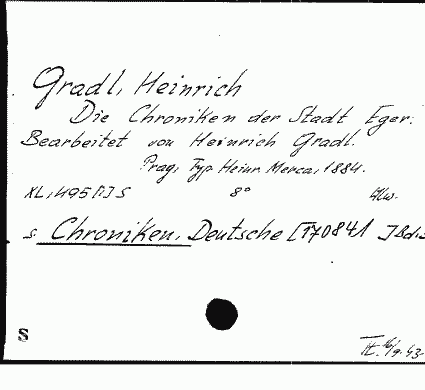 Gradl, Heinrich
Die Chroniken der Stadt Eger.
Bearbeitet von Heinrich Gradl.
Prag, Typ Heinr. Merca, 1884.
XL, 495 [1] S 8°
s. Chroniken, Deutsche [170841 ] Bd.
S